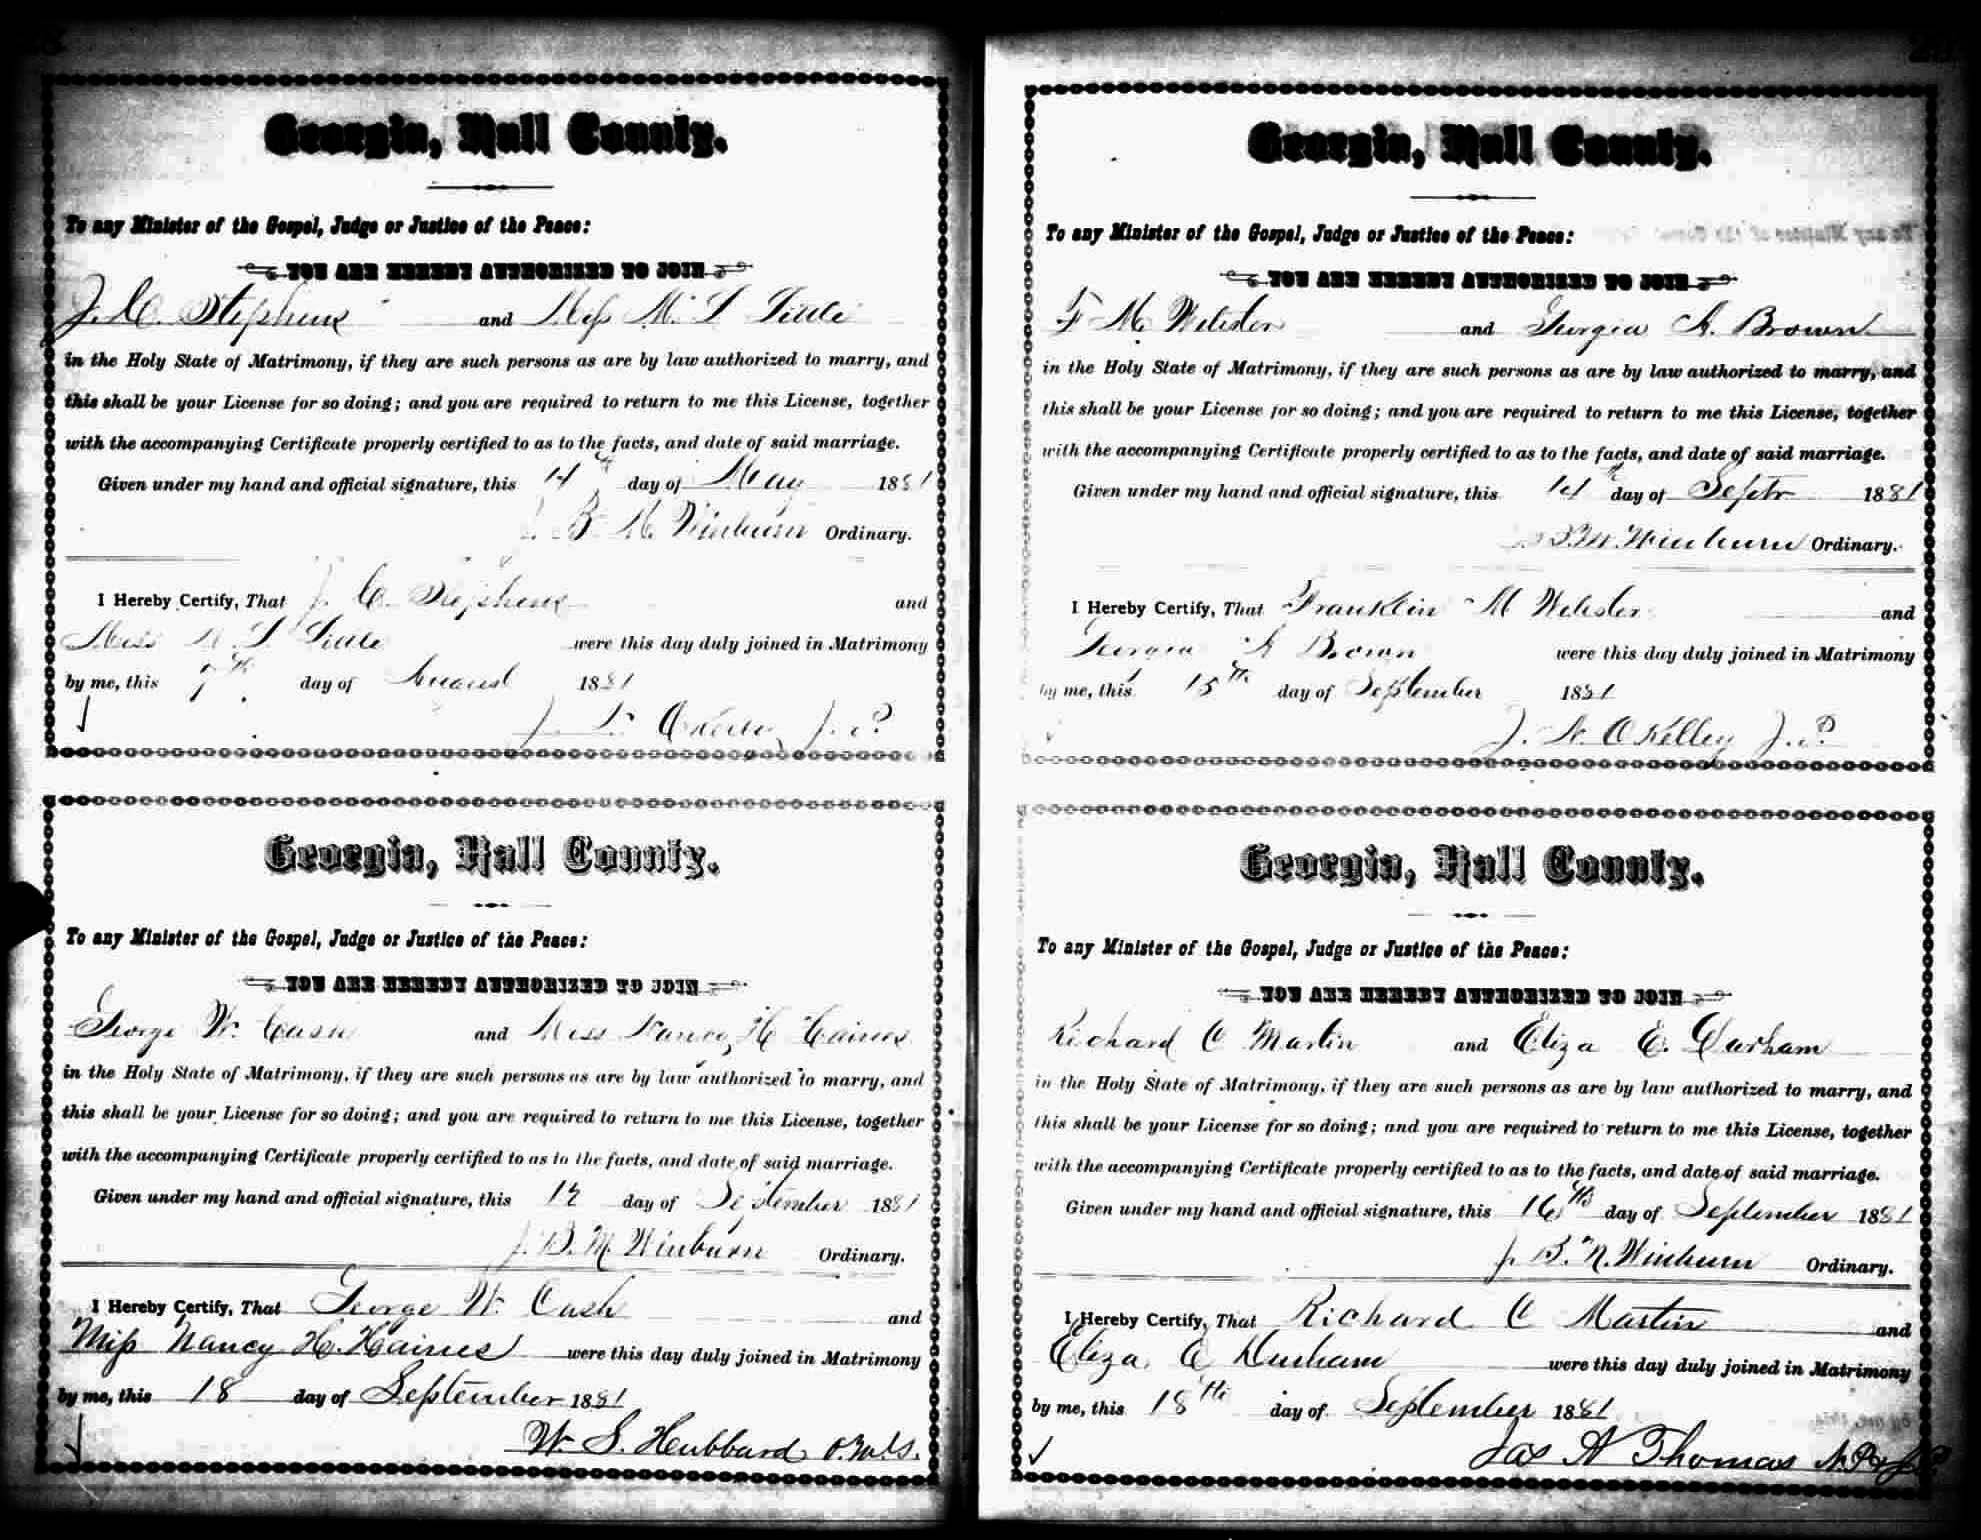 Georgia, Hall County.
To any Minister of the Gospel, Judge or Justice of the Peace:
YOU ARE HEREBY AUTHORIZED TO JOIN
J. C. Stephens and Miss M. L Little
in the Holy State of Matrimony, if they are such persons as are by law authorized to marry, and
this shall be your License for so doing; and you are required to return to me this License, together
with the accompanying Certificate properly certified to as to the facts, and date of said marriage.
Given under my hand and official signature, this 14th day of May 1881
J. B. M. Winburn Ordinary.
I Hereby Certify, That J. C. Stephens and
Miss M. L. Little were this day duly joined in Matrimony
by me, this 7th day of August 1881
J. P.
Georgia, Hall County.
To any Minister of the Gospel, Judge or Justice of the Peace:
YOU ARE HEREBY AUTHORIZED TO JOIN
George W. Cash and Miss Nancy H Haines
in the Holy State of Matrimony, if they are such persons as are by law authorized to marry, and
this shall be your License for so doing; and you are required to return to me this License, together
with the accompanying Certificate properly certified to as to the facts, and date of said marriage.
Given under my hand and official signature, this day of September 1881
J. B. M. Winburn Ordinary.
I Hereby Certify, That George W. Cash and
Miss Nancy H. Haines were this day duly joined in Matrimony
by me, this 18 day of September 1881
W. S. Hubbard
Georgia, Hall County.
To any Minister of the Gospel, Judge or Justice of the Peace:
YOU ARE HEREBY AUTHORIZED TO JOIN
F M. Webster and Georgia A. Brown
in the Holy State of Matrimony, if they are such persons as are by law authorized to marry, and
this shall be your License for so doing; and you are required to return to me this License, together
with the accompanying Certificate properly certified to as to the facts, and date of said marriage.
Given under my hand and official signature, this 14th day of Septr 1881
J. B. M. Winburn Ordinary.
I Hereby Certify, That Franklin M Webster and
Georgia A Brown were this day duly joined in Matrimony
by me, this 15th day of September 1881
J. O Kelley J. P.
Georgia, Hall County.
To any Minister of the Gospel, Judge or Justice of the Peace:
YOU ARE HEREBY AUTHORIZED TO JOIN
Richard C Martin and Eliza E. Durham
in the Holy State of Matrimony, if they are such persons as are by law authorized to marry, and
this shall be your License for so doing; and you are required to return to me this License, together
with the accompanying Certificate properly certified to as to the facts, and date of said marriage.
Given under my hand and official signature, this 16th day of September 1881
J. B. M. Winburn Ordinary.
I Hereby Certify, That Richard C Martin and
Eliza E Durham were this day duly joined in Matrimony
by me, this 18th day of September 1881
Jas A Thomas N.P.